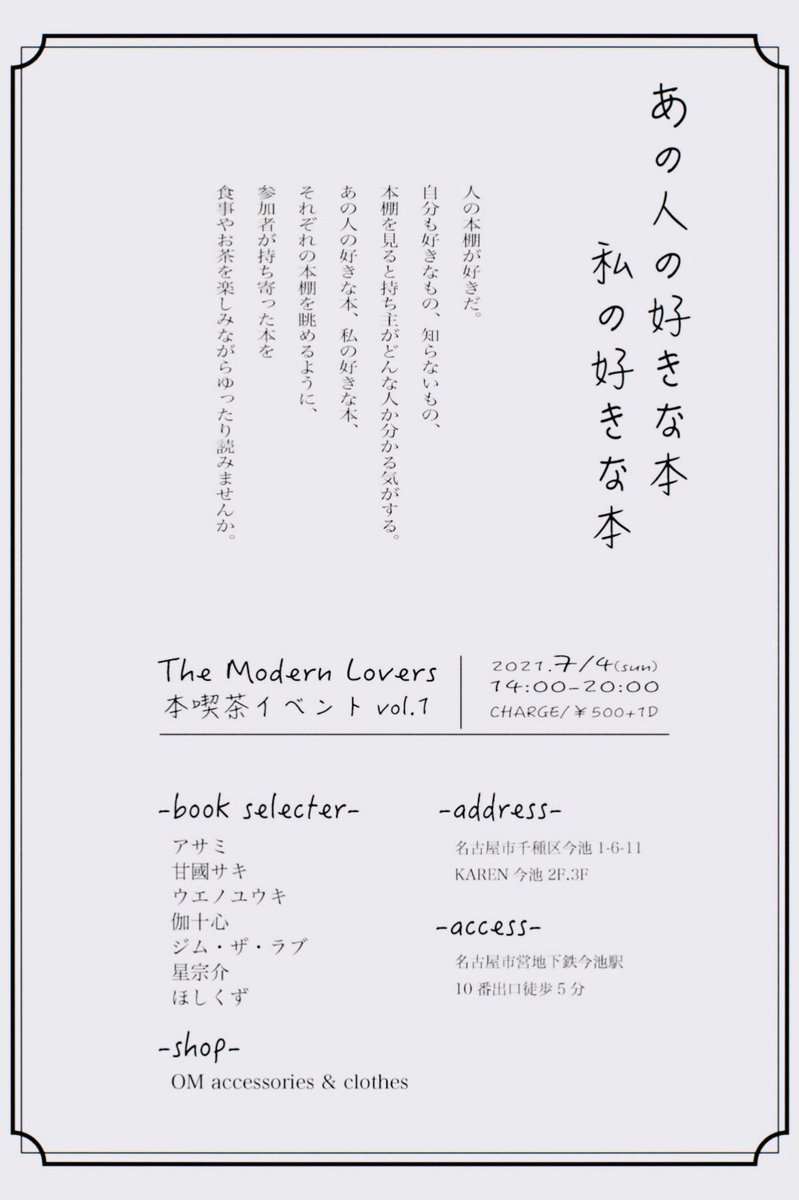 あの人の好きな本
私の好きな本
人の本棚が好きだ。
自分も好きなもの、知らないもの、
本棚を見ると持ち主がどんな人か分かる気がする。
あの人の好きな本、私の好きな本、
それぞれの本棚を眺めるように、
参加者が持ち寄った本を
食事やお茶を楽しみながらゆったり読みませんか。
The Modern Lovers
本喫茶イベント vol.1
2021.7/4(sun)
14:00-20:00
CHARGE/¥500+1D
-book selecter-
アサミ
甘國サキ
ウエノユウキ
伽十心
ジム・ザ・ラブ
星宗介
ほしくず
-shop-
OM accessories & clothes
-address-
名古屋市千種区今池 1-6-11
KAREN 今池 2F.3F
-access-
名古屋市営地下鉄今池駅
10 番出口徒歩 5 分